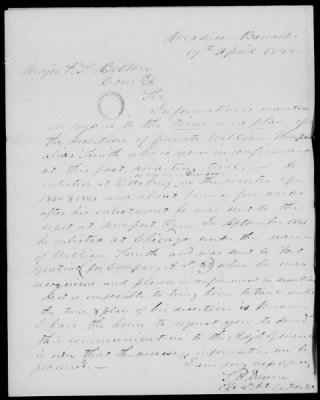 Madison Barracks
17th April 1842
Major
Sir
Information is wanted
in regard to the time and place of
the desertion of private William
alias Smith who is now in confinement
at this post, awaiting trial. He
enlisted at in the winter of
1840 & 1841 and about four or five months
after his enlistment he was sent to the
depot at Newport Ky. In September 1841
he enlisted at Chicago under the name
of William Smith and was sent to Fort
Gratiot for Company where he was
recognised and placed in confinement for desertion
As it is impossible to bring him to trial until
the time & place of his desertion is known
I have the honor to request you to send
this communication to the Adjt General
in order that the necessary information can be
procured.
I am Sir very respectfully